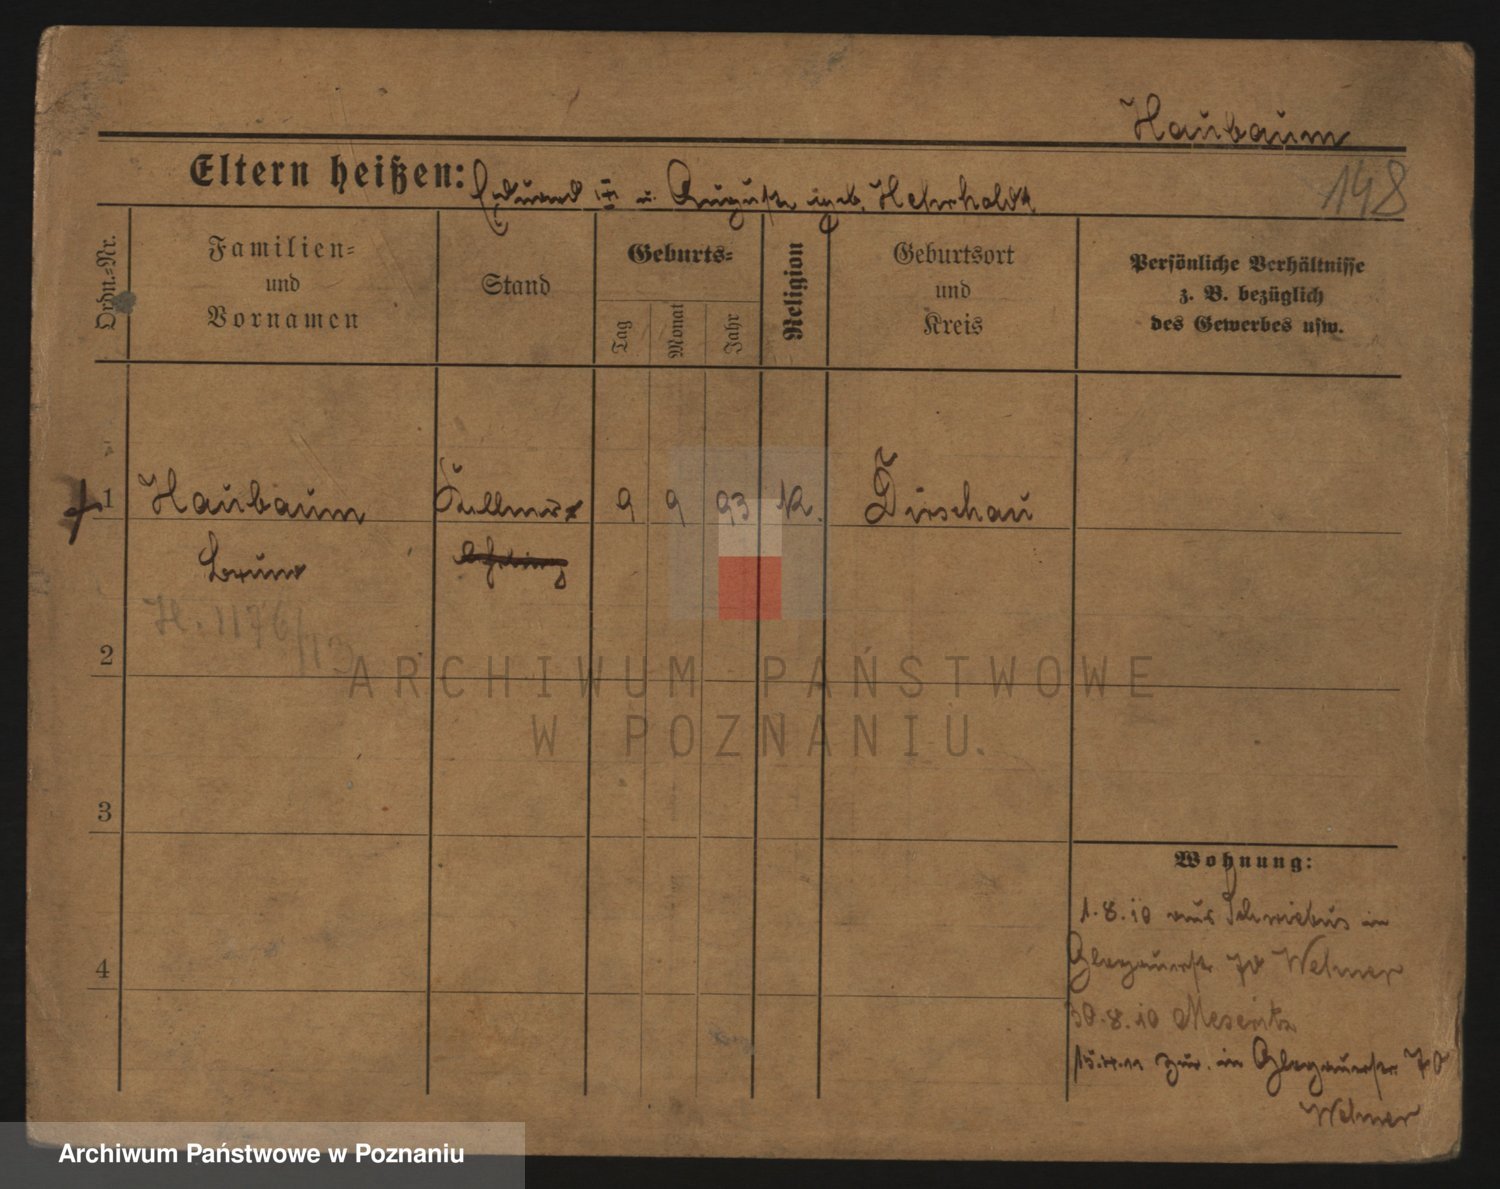 Haubaum
Eltern heißen: Eduard u. Auguste geb. Hehrholdt
148
Ordn.=Nr.
Familien=
und
Vornamen
Stand
Geburts=
Tag
Monat
Jahr
Religion
Geburtsort
und
Kreis
Persönliche Verhältnisse
z. B. bezüglich
des Gewerbes usw.
1 Haubaum Kellner 9 9 93 K. Dirschau
Bruno
H. 1176/13
2
ARCHIWUM PAŃSTWOWE
W POZNANIU.
3
Wohnung:
1.8.10 aus Schwiebus in
Glogauerstr 70 Welmer
4
30.8.10 Meseritz
15.4.11 zur. in Glogauerstr. 70
Welmer
Archiwum Państwowe w Poznaniu